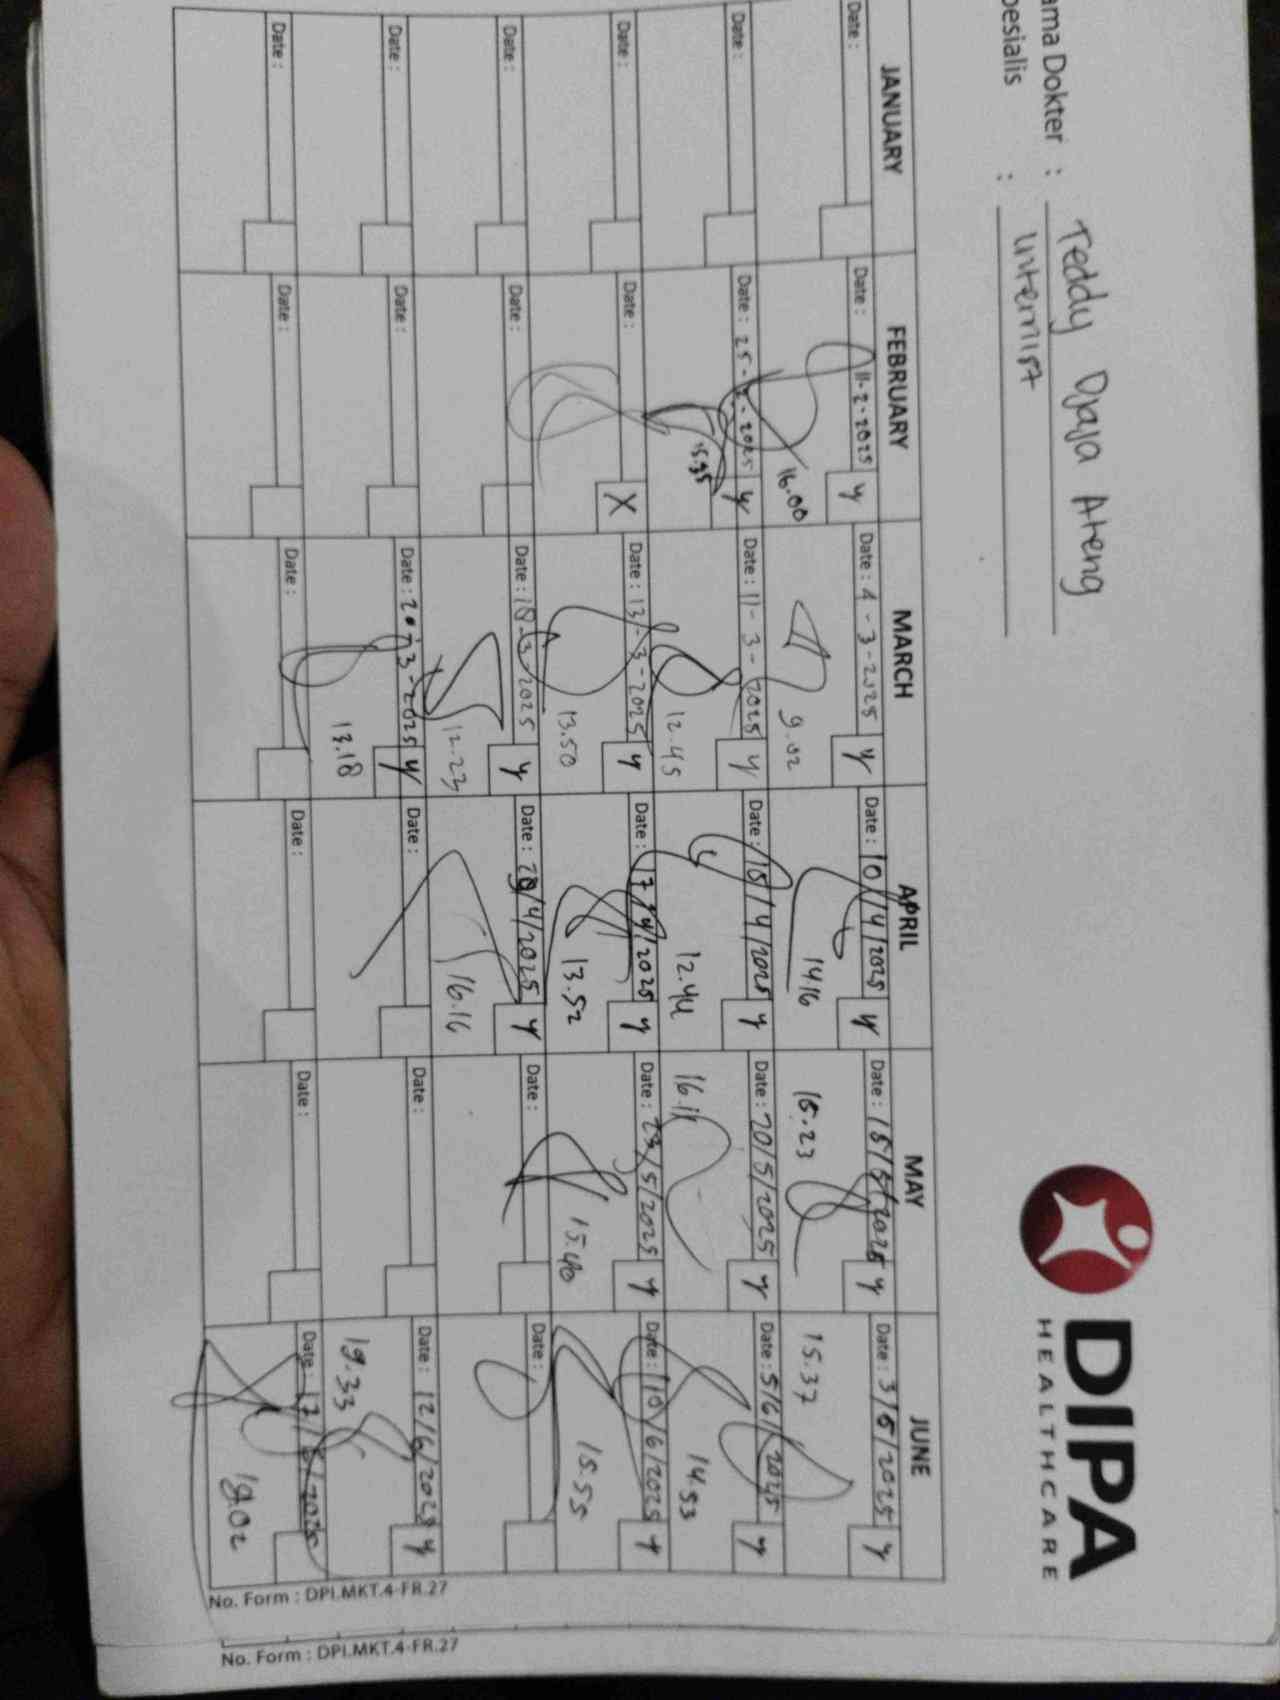 ama Dokter : Teddy Djaja Ateng
pesialis : Internist
DIPA
HEALTHCARE
JANUARY FEBRUARY MARCH APRIL MAY JUNE
Date : Date : 11-2-2025 y Date : 4-3-2025 y Date : 10/4/2025 y Date : 15/5/2025 y Date : 3/6/2025 y
16.00 9.02 1416 15.23 15.37
Date : Date : 25-2-2025 y Date : 11-3-2025 y Date : 15/4/2025 y Date : 20/5/2025 y Date : 5/6/2025 y
15.35 12.45 12.44 16.11 14.53
Date : Date : X Date : 13-3-2025 y Date : 17/4/2025 y Date : 23/5/2025 y Date : 10/6/2025 y
13.50 13.52 15.40 15.55
Date : Date : Date : 18-3-2025 y Date : 29/4/2025 y Date : Date :
12.23 16.16
Date : Date : Date : 20-3-2025 y Date : Date : Date : 12/6/2025 y
13.18 19.33
Date : Date : Date : Date : Date : Date : 17/6/2025
18.02
No. Form : DPI.MKT.4-FR.27
No. Form : DPI.MKT.4-FR.27